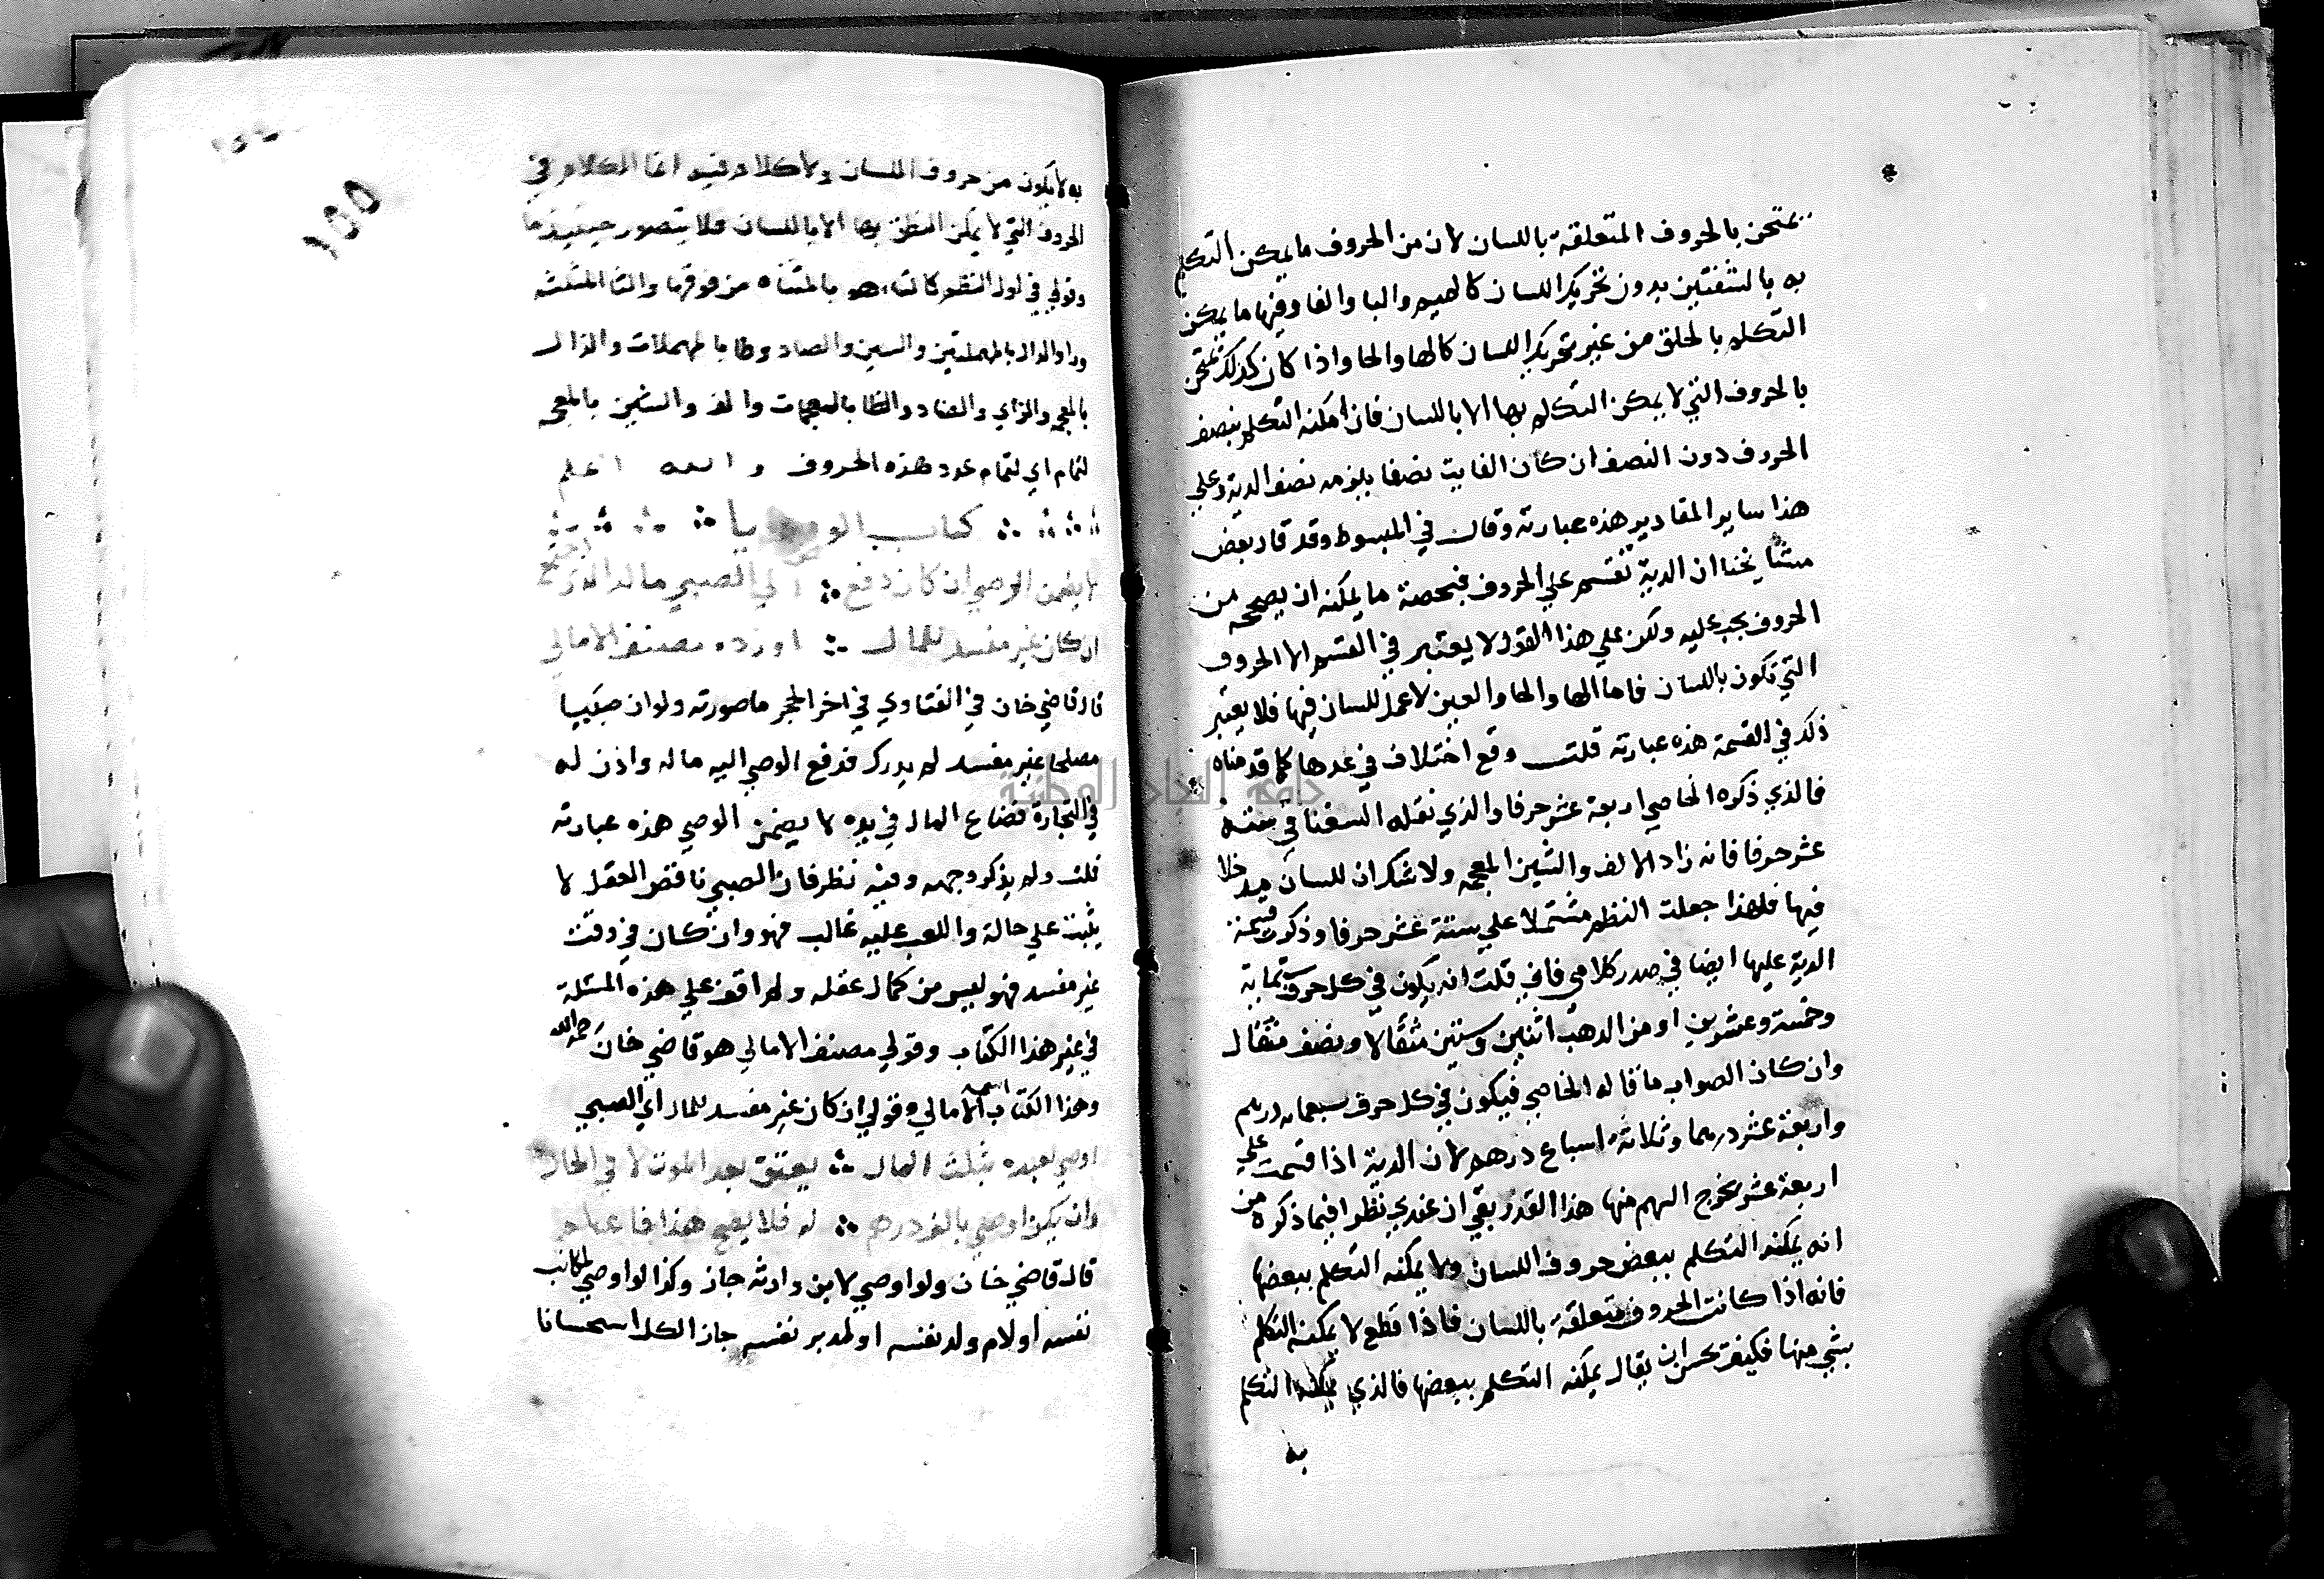 يمتحن بالحروف المتعلقة باللسان لان من الحروف ما يمكن التكلم
به بالشفتين بدون تحريك اللسان كالميم والبا والفا وفيها ما يمكن
التكلم بالحلق من غير تحريك اللسان كالها والحا واذا كان كذلك يمتحن
بالحروف التي لا يمكن التكلم بها الا باللسان فان امكنه التكلم بنصف
الحروف دون النصف ان كان الفايت نصفا يلزمه نصف الدية وعلي
هذا ساير المقادير هذه عبارته وقال في المبسوط وقد قال بعض
مشايخنا ان الدية تقسم علي الحروف فبحصة ما يمكنه ان يصححه من
الحروف يجب عليه ولكن علي هذا القول لا يعتبر في القسم الا الحروف
التي تكون باللسان فاما الها والحا والعين لا عمل للسان فيها فلا يعتبر
ذلك في القسمة هذه عبارته قلت وقع اختلاف في عدها كما قدمناه
فالذي ذكره الخاصي اربعة عشر حرفا والذي نقله السغناقي ستة
عشر حرفا فانه زاد الالف والشين المعجمه ولا شك ان للسان مدخلا
فيها فلهذا جعلت النظم مشتملا علي ستة عشر حرفا وذكرت قيمة
الدية عليها ايضا في صدر كلامي فاني قلت انه يكون في كل حرف ستماية
وخمسة وعشرين او من الذهب اثنين وستين مثقالا ونصف مثقال
وان كان الصواب ما قاله الخاصي فيكون في كل حرف سبعمايه درهم
واربعة عشر درهما وثلاثة اسباع درهم لان الدية اذا قسمت علي
اربعة عشر يخرج السهم منها هذا القدر بقي ان عندي نظرا فيما ذكره من
انه يمكنه التكلم ببعض حروف اللسان ولا يمكنه التكلم ببعضها
فانه اذا كانت الحروف متعلقة باللسان فاذا قطع لا يمكنه التكلم
بشي منها فكيف يحسن ان يقال يمكنه التكلم ببعضها فالذي يمكنه التكلم
به
١٥٥
به لا يكون من حروف اللسان ولا كلام فيه انما الكلام في
الحروف التي لا يمكن النطق بها الا باللسان فلا يتصور حينيذ ما
وقولي في اول النظم كالتا هو بالمثناه من فوقها والثا المثلثه
ورا والدال بالمهملتين والسين والصاد وطا بالمهملات والذال
بالمعجمه والزاي والضاد والظا بالمعجمات والف والشين بالمعجمه
لتمام اي لتمام عدد هذه الحروف والله اعلم
كتاب الوصايا
لا يضمن الوصي ان كان دفع الي الصبي ماله
ان كان غير مفسد للمال اورده مصنف الامالي
قال قاضي خان في الفتاوي في اخر الحجر ما صورته ولو ان صبيا
مصلحا غير مفسد لم يدرك فدفع الوصي اليه ماله واذن له
في التجارة فضاع المال في يده لا يضمن الوصي هذه عبارته
قلت ولم يذكر وجهه وفيه نظر فان الصبي ناقص العقل لا
يثبت علي حالة واللعب عليه غالب فهو وان كان في وقت
غير مفسد فهو ليس من كمال عقله ولم اقف علي هذه المسئلة
في غير هذا الكتاب وقولي مصنف الامالي هو قاضي خان رحمه الله
وهذا الكتاب اسمه الامالي وقولي ان كان غير مفسد للمال اي الصبي
اوصي لعبده بثلث المال يعتق بعد الموت لا في الحال
وان يكن اوصي بالف درهم له فلا يصح هذا فاعلم
قال قاضي خان ولو اوصي لابن وارثه جاز وكذا لو اوصي لمكاتب
نفسه او لام ولد نفسه او لمدبر نفسه جاز الكل استحسانا